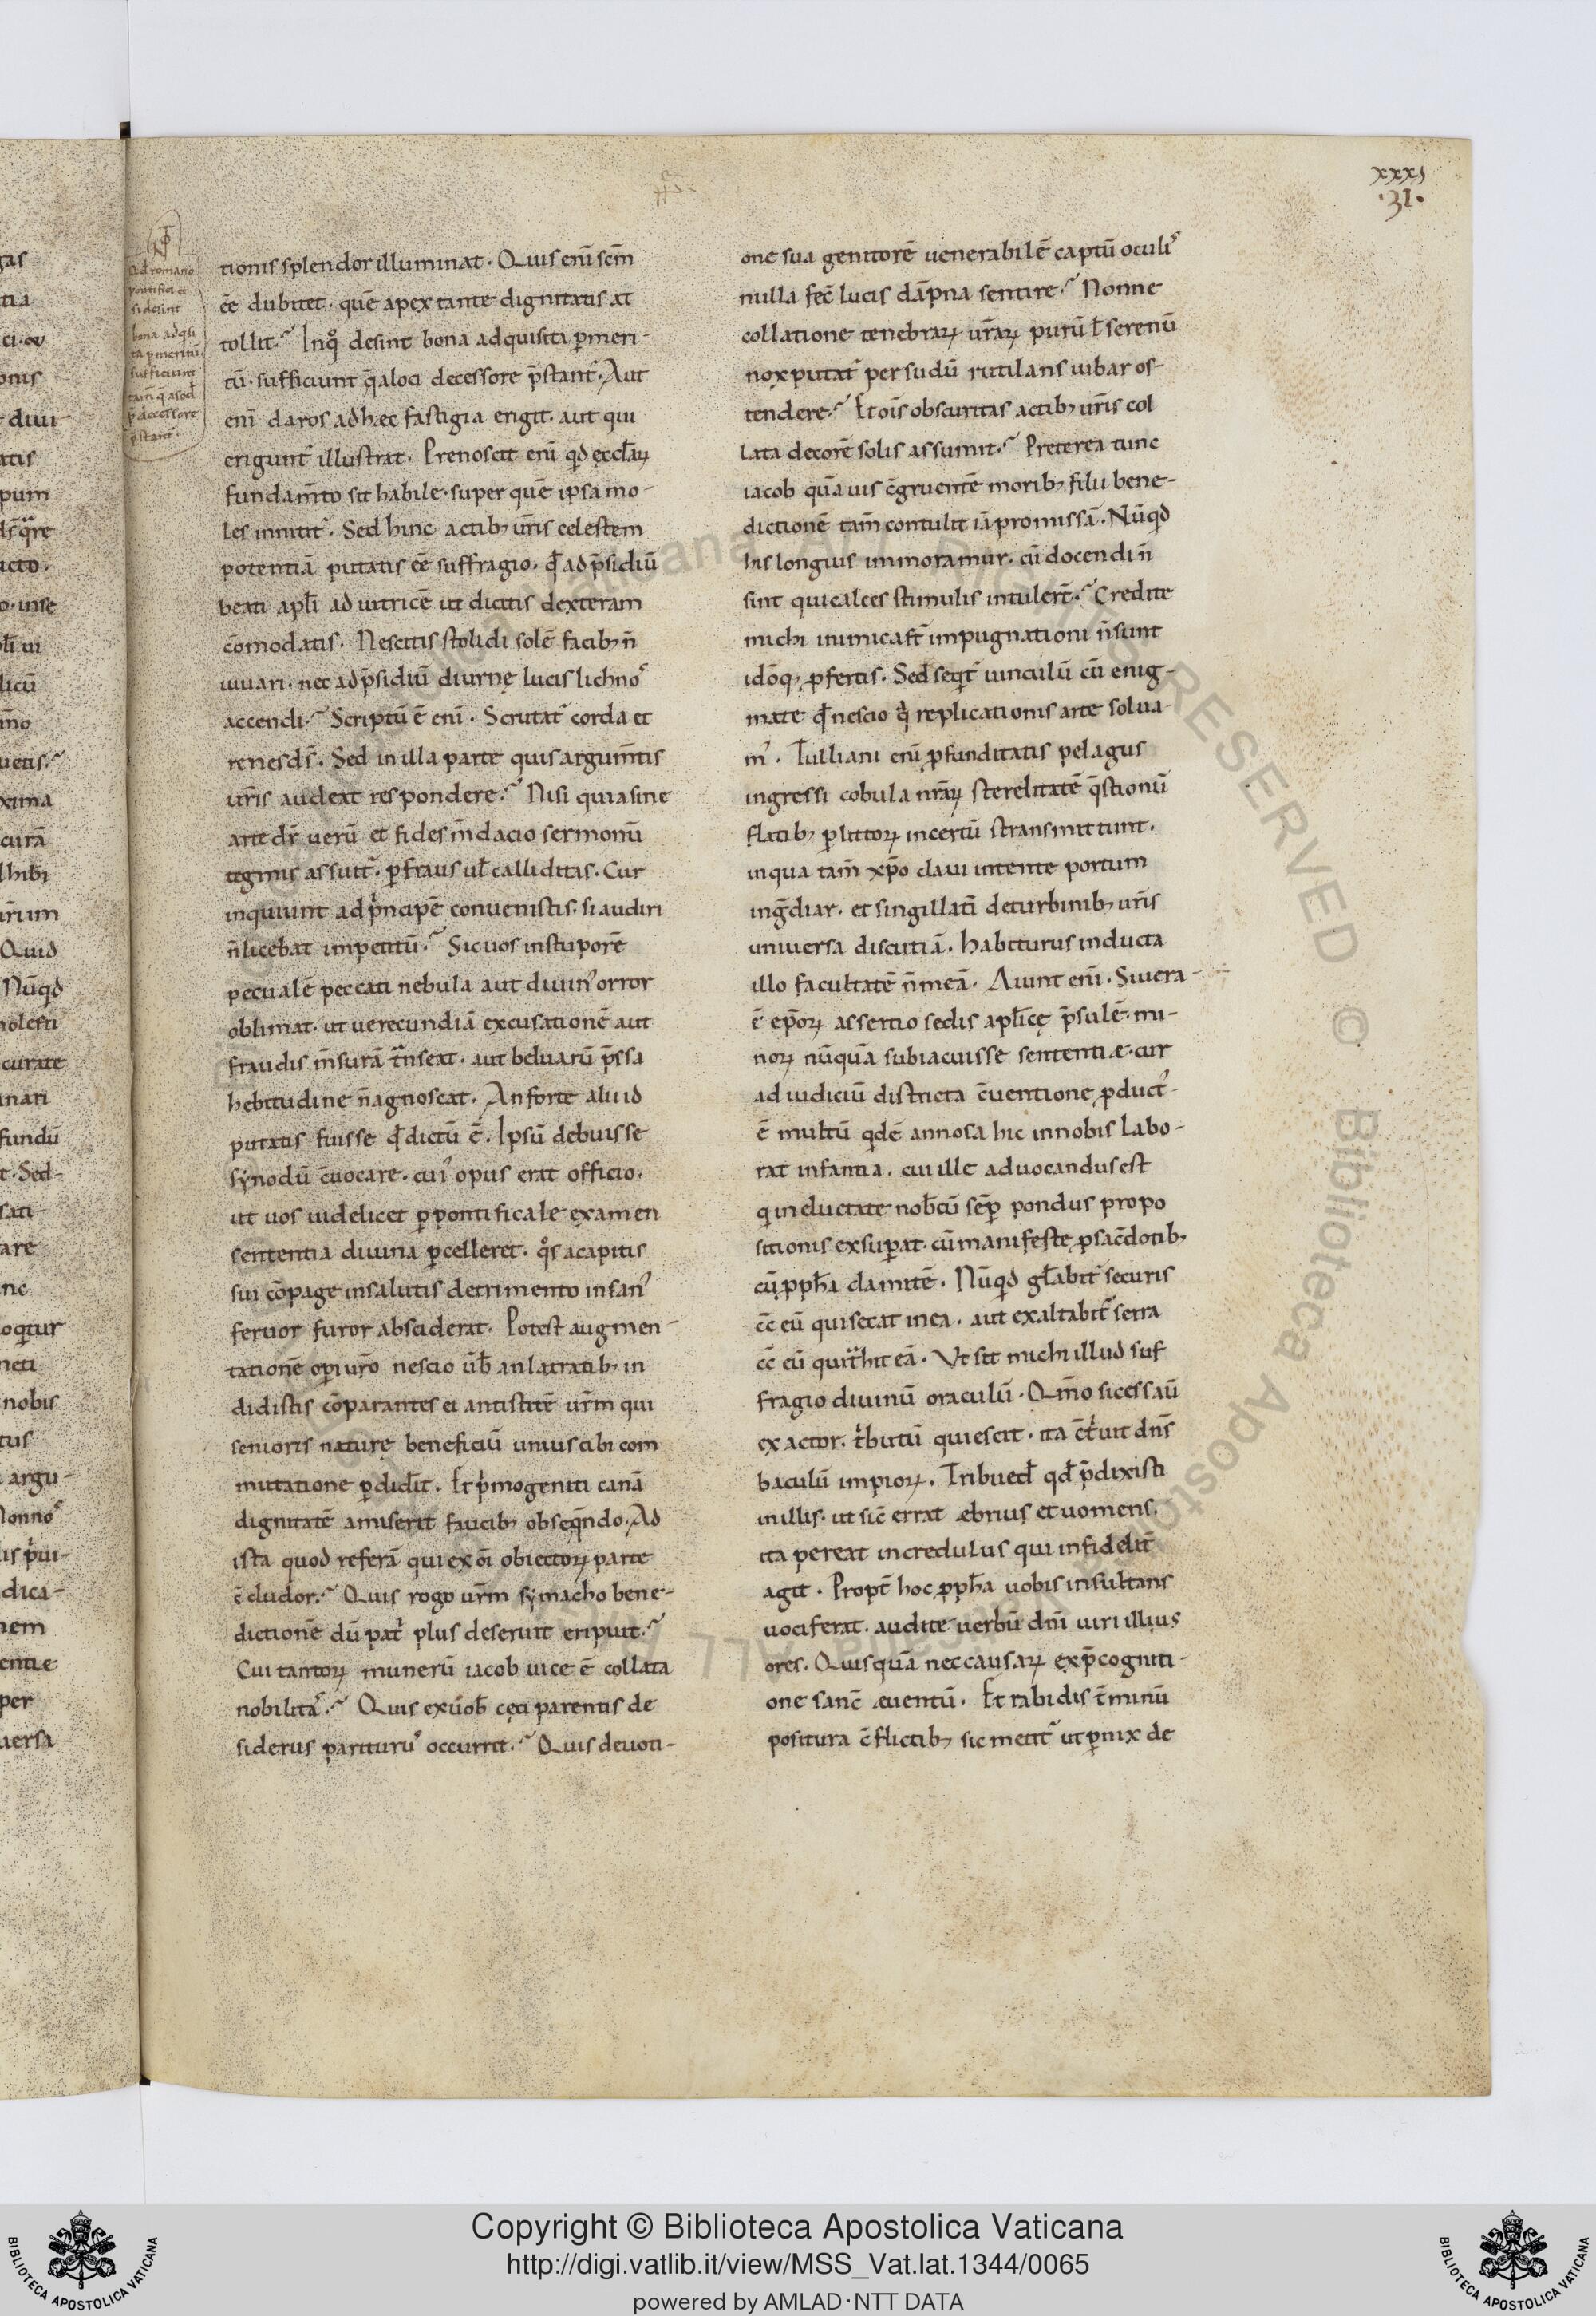 xxxi
·31·
Ad romano
pontifici et
si desint
bona adq̃si
ta p̱meritũ
sufficiunt
tam̃ q̃ a sed̃
p̃ decessore
p̃stant᷑.
tionis splendor illuminat. Quis enĩ scm̃
ẽe dubitet. quẽ apex tante dignitatis at
tollit? In qͦ desint bona adquisita p̱meri-
tũ. sufficiunt q̃ a loci decessore p̃stant᷑. Aut
enĩ claros ad hęc fastigia erigit. aut qui
erigunt᷑ illustrat. Prenoscit enĩ qđ ęccƚaꝝ
fundam̃to sit habile. super quẽ ipsa mo-
les innitit᷑. Sed hinc actibꝫ ur̃is celestem
potentiã putatis ẽe suffragio. qđ ad p̃sidiũ
beati apƚi adiutricẽ ut dicitis dexteram
cõmodatis. Nescitis stolidi solẽ facibꝫ ñ
iuuari. nec ad p̃sidiũ diurnę lucis lichnoˀ
accendi? Scriptũ ẽ enĩ. Scrutat᷑ corda et
renes ds̃. Sed in illa parte quis argum̃tis
ur̃is audeat respondere? Nisi quia sine
arte dr̃ uerũ et fides m̃dacio sermonũ
tegmis assuit᷑. ꝑ fraus uƚ calliditas. Cur
inquiunt ad p̃ncipẽ conuenistis. si audiri
ñ licebat impetitũ? Sic uos in stuporẽ
pecualẽ peccati nebula aut diuinˀ orror
oblimat. ut uerecundiã excusationẽ aut
fraudis m̃surã tr̃nseat. aut beluarũ p̃ssa
hebitudine ñ agnoscat. An forte aliud
putatis fuisse qđ dictũ ẽ. Ipsũ debuisse
sẏnodũ c̃uocare. cuiˀ opus erat officio.
ut uos uidelicet ꝑ pontificale examen
sententia diuina ꝑcelleret. qͦs a capitis
sui cõpage in salutis detrimento insanˀ
feruor furor absciderat. Potest augmen-
tationẽ operi ur̃o nescio ũb̃ an latratibꝫ in
didistis cõparantes ei antistitẽ ur̃m qui
senioris naturę beneficiũ unius cibi com
mutatione ꝑdidit̃. Et p̃mogeniti canã
dignitatẽ amiserit faucibꝫ obseq̃ndo. Ad
ista quod referã qui ex õi obiectoꝝ parte
c̃cludor? Quis rogo ur̃m sẏmacho bene-
dictionẽ dũ pat᷑ plus deseruit eripuit?
Cui tantoꝝ munerũ iacob uice ẽ collata
nobilitaˀ? Quis exũob̃ ceci parentis de
siderus pariturũˀ occurrit? Quis deuoti-
one sua genitorẽ uenerabilẽ captũ oculiˀ
nulla fec̃ lucis dãpna sentire? Nonne
collatione tenebraꝝ ur̃aꝝ purũ ƚ serenũ
nox putat᷑ per sudũ rutilans iubar os-
tendere? Et oĩs obscuritas actibꝫ ur̃is col
lata decorẽ solis assumit? Preterea tunc
iacob quãuis c̃gruentẽ moribꝫ filii bene-
dictionẽ tam̃ contulit iã promissã. Nũqđ
his longius immoramur. cũ docendi ñ
sint qui calces stimulis intulerĩt? Credite
michi inimica ft᷑ impugnationi ñ sunt
idõ qꝫ ꝓfertis. Sed seqt᷑ uinculũ cũ enig-
mate qđ nescio q̇ replicationis arte solua-
mˀ. Tulliani enĩ ꝓfunditatis pelagus
ingressi cobula nr̃aꝝ sterelitatẽ q̃stionũ
flatibꝫ ꝑ littoꝝ incertũ stransmittunt.
in qua tam̃ xp̃o claui intente portum
ing̃diar. et singillatĩ de turbinibꝫ ur̃is
uniuersa discutiã. habiturus inducta
illo facultatẽ ñ meã. Aiunt enĩ. Si uera
ẽ ep̃oꝝ assertio sedis apƚicę p̃sulẽ mi-
noꝝ nũquã subiacuisse sententię. cur
ad iudiciũ districta c̃uentione ꝓductˀ
ẽ multũ qdẽ annosa hic in nobis labo-
rat infantia. cui ille aduocandus est
q̇ in eluctate nob̃cũ sẽꝑ pondus propo
sitionis exsuꝑat. cũ manifeste ꝓ sac̃dotibꝫ
cũ ꝓph̃a clamitẽ. Nũqđ gƚabit᷑ securis
c̃c eũ qui secat in ea. aut exaltabit᷑ serra
c̃c eũ qui tr̃hit eã. Vt sit michi illud suf
fragio diuinũ oraculũ. Qm̃o si cessaũ
exactor. t̃butũ quiescit. ita c̃t̃uit dns̃
baculũ impioꝝ. Tribued̃ qđ p̃dixisti
in illis. ut sic̃ errat ębrius et uomens.
ita pereat incredulus qui infidelit̃
agit. Propt̃ hoc ꝓph̃a uobis insultans
uociferat. audite uerbũ dñi uiri illius
ores. Quisquã nec causaꝝ ex p̃cogniti-
one sanc̃ euentũ. Et rabidis t̃minũ
positura c̃flictibꝫ sic metit᷑ ut ꝑnix de
Copyright © Biblioteca Apostolica Vaticana
http://digi.vatlib.it/view/MSS_Vat.lat.1344/0065
powered by AMLAD·NTT DATA